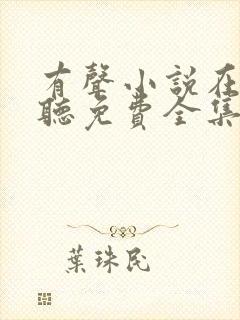 有聲小説在
聽免費全集
葉珠民